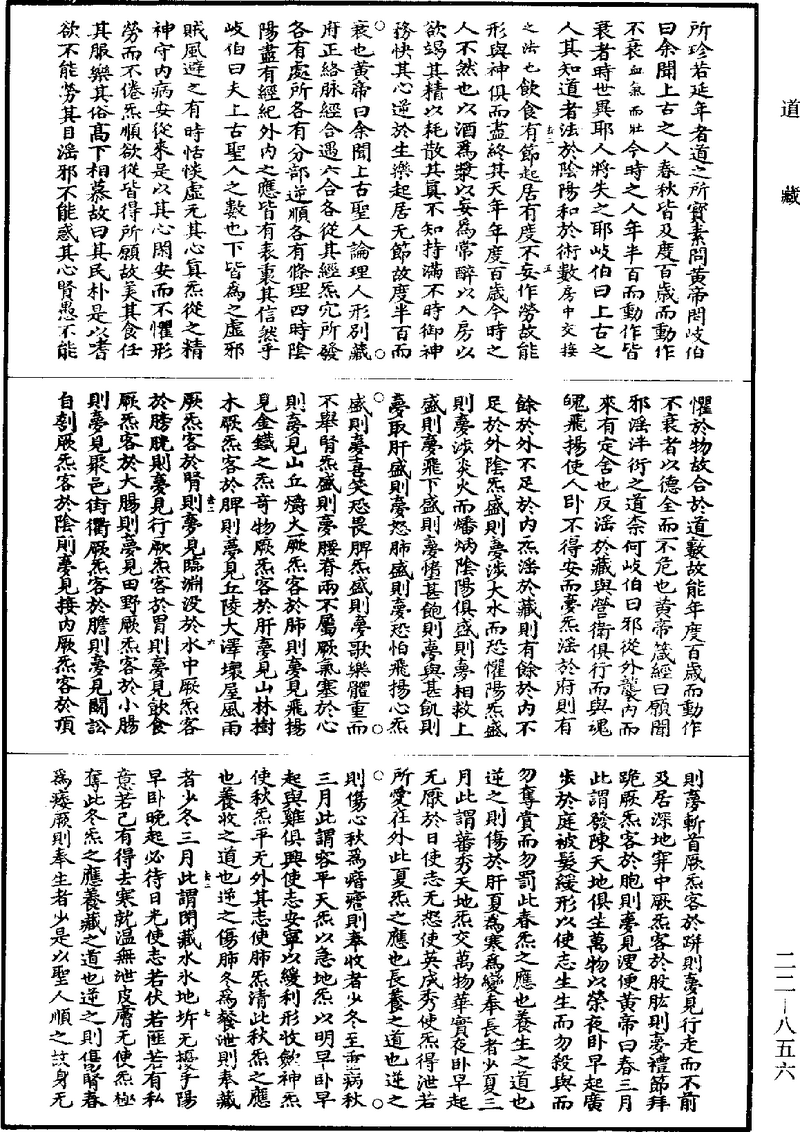 道藏
二二—八五六
所珍若延年者道之所寶素問黃帝問岐伯
曰余聞上古之人春秋皆及度百歲而動作
不衰血氣而壯今時之人年半百而動作皆
衰者時世異耶人將失之耶岐伯曰上古之
人其知道者法於陰陽和於術數房中交接
之法也飲食有節起居有度不妄作勞故能
形與神俱而盡終其天年年度百歲今時之
人不然也以酒爲漿以妄爲常醉以入房以
欲竭其精以耗散其真不知持滿不時御神
務快其心逆於生樂起居无節故度半百而
衰也黃帝曰余聞上古聖人論理人形別藏
府正絡脉經合過六合各從其經炁穴所發
各有處所各有分部逆順各有條理四時陰
陽盡有經紀外内之應皆有表裏其信然乎
岐伯曰夫上古聖人之數也下皆爲之虛邪
賊風避之有時恬惔虛无其心真炁從之精
神守内病安從來是以其心閑安而不懼形
勞而不倦炁順欲從皆得所願故美其食任
其服樂其俗高下相慕故曰其民朴是以嗜
欲不能勞其目淫邪不能惑其心賢愚不能
懼於物故合於道數故能年度百歲而動作
不衰者以德全而不危也黃帝箴經曰願聞
邪淫泮衍之道柰何岐伯曰邪從外襲内而
來有定舍也反淫於藏與營衛俱行而與魂
魄飛揚使人臥不得安而夢炁淫於府則有
餘於外不足於内炁淫於藏則有餘於内不
足於外陰炁盛則夢涉大水而恐懼陽炁盛
則夢涉炎火而燔炳陰陽俱盛則夢相救上
盛則夢飛下盛則夢墮甚飽則夢與甚飢則
夢取肝盛則夢怒肺盛則夢恐怕飛揚心炁
盛則夢喜笑恐畏脾炁盛則夢歌樂體重而
不舉腎炁盛則夢腰脊兩不屬厥氣塞於心
則夢見山丘爝火厥炁客於肺則夢見飛揚
見金鐵之炁奇物厥炁客於肝夢見山林樹
木厥炁客於脾則夢見丘陵大澤壞屋風雨
厥炁客於腎則夢見臨淵没於水中厥炁客
於膀胱則夢見行厥炁客於胃則夢見飲食
厥炁客於大腸則夢見田野厥炁客於小腸
則夢見聚邑街衢厥炁客於膽則夢見鬭訟
自刳厥炁客於陰則夢見接内厥炁客於項
則夢斬首厥炁客於跰則夢見行走而不前
及居深地穽中厥炁客於股肱則夢禮節拜
跪厥炁客於胞則夢見溲便黃帝曰春三月
此謂發陳天地俱生萬物以榮夜卧早起廣
步於庭被髮緩形以使志生生而勿殺與而
勿奪賞而勿罰此春炁之應也養生之道也
逆之則傷於肝夏爲寒爲變奉長者少夏三
月此謂蕃秀天地炁交萬物華實夜卧早起
无厭於日使志无怒使英成秀使炁得泄若
所愛在外此夏炁之應也長養之道也逆之
則傷心秋爲痎瘧則奉收者少冬至重病秋
三月此謂容平天炁以急地炁以明早卧早
起與雞俱興使志安寧以緩利形收歛神炁
使秋炁平无外其志使肺炁清此秋炁之應
也養收之道也逆之傷肺冬爲飱泄則奉藏
者少冬三月此謂閉藏水氷地坼无擾乎陽
早卧晚起必待日光使志若伏若匪若有私
意若己有得去寒就温無泄皮膚无使炁極
奪此冬炁之應養藏之道也逆之則傷腎春
爲痿厥則奉生者少是以聖人順之故身无